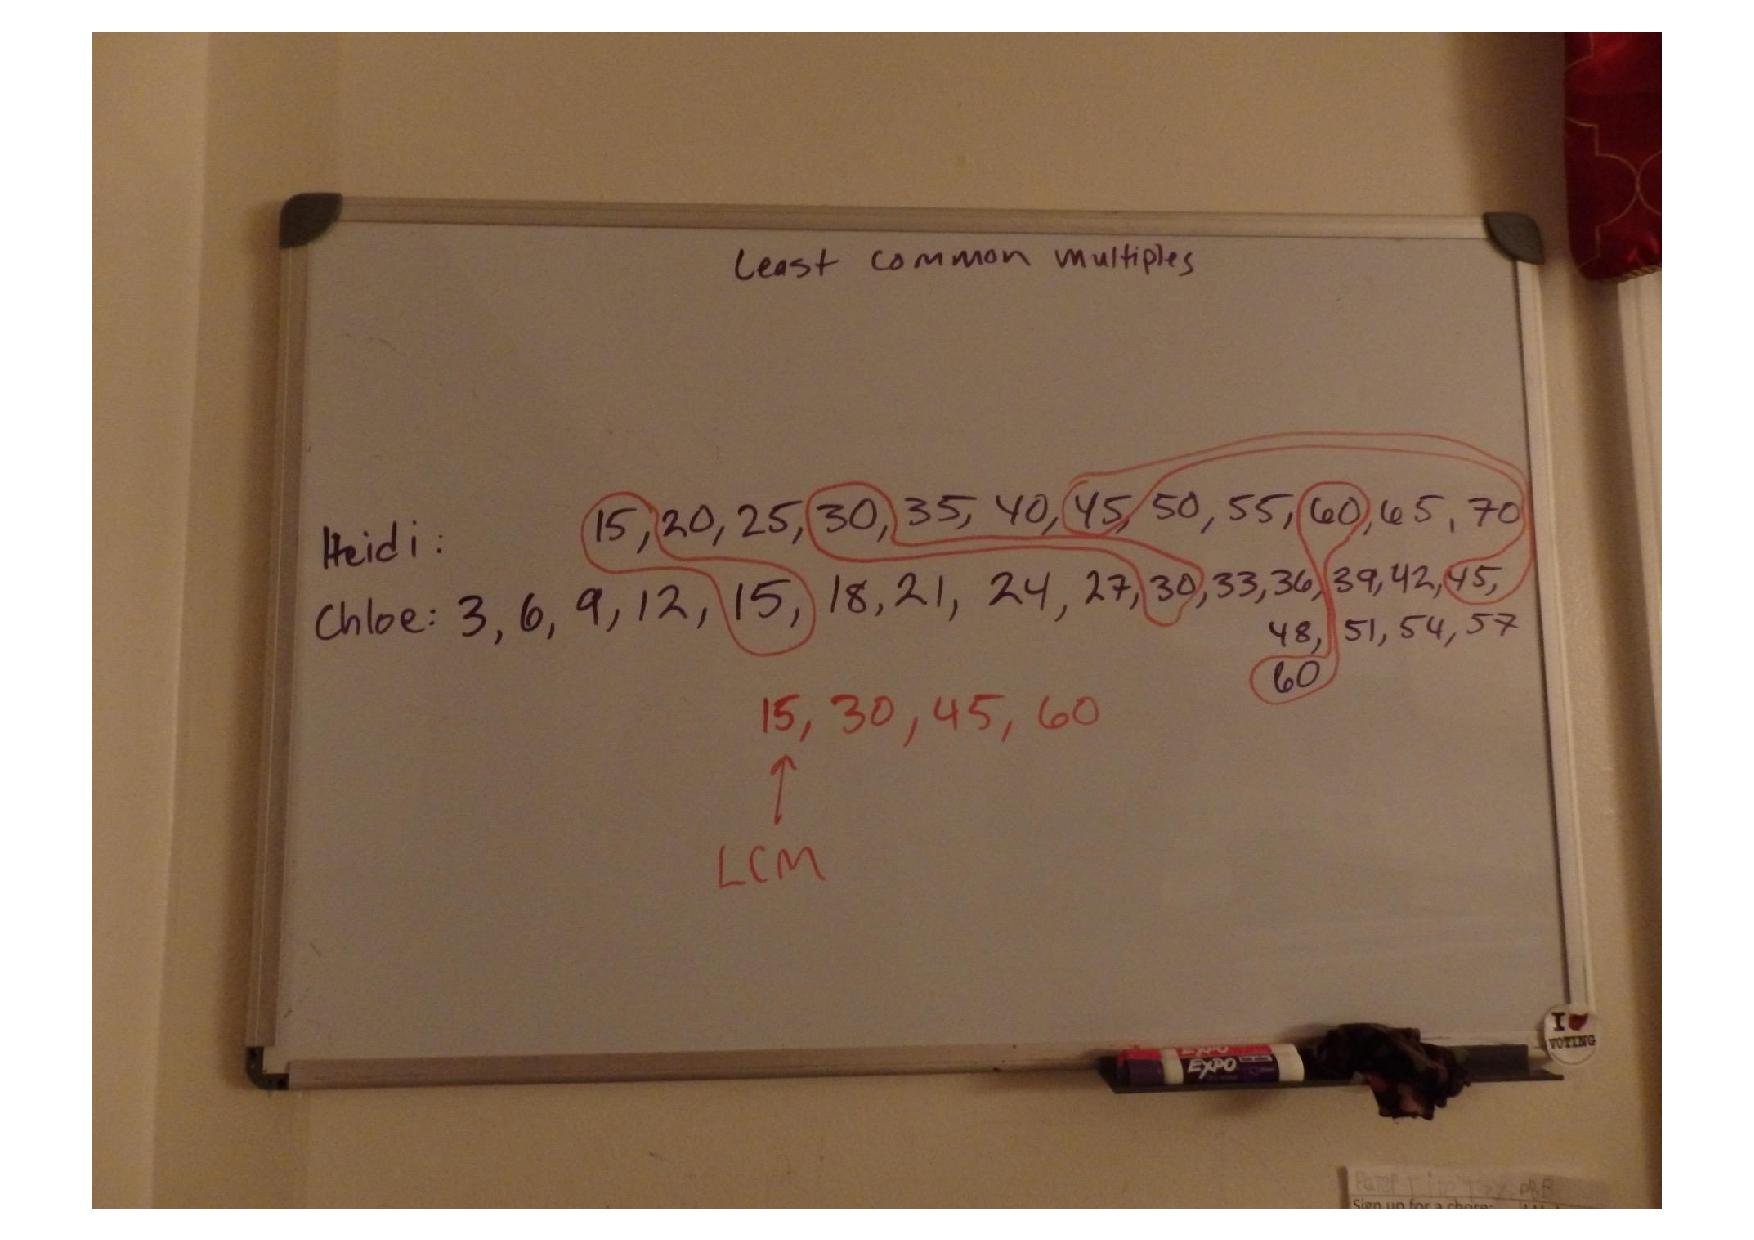 Least common multiples
Heidi: 15, 20, 25, 30, 35, 40, 45, 50, 55, 60, 65, 70
Chloe: 3, 6, 9, 12, 15, 18, 21, 24, 27, 30, 33, 36, 39, 42, 45,
48, 51, 54, 57
60
15, 30, 45, 60
LCM
I
VOTING
EXPO
EXPO
Sign up for a chore: